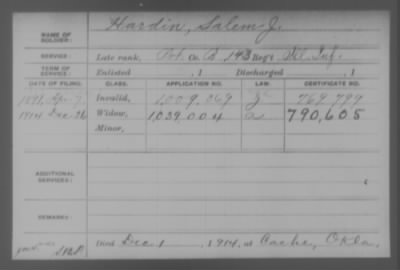 NAME OF SOLDIER: Hardin, Salem J.
SERVICE: Late rank, Pvt. Co. B, 143 Reg't Ill. Inf.
TERM OF SERVICE: Enlisted , 1 Discharged , 1
DATE OF FILING. CLASS. APPLICATION NO. LAW. CERTIFICATE NO.
1891, Apr. 7 Invalid, 1.009.069 769.799
1914 Dec 26 Widow, 1039.004 a 790,605
Minor,
ADDITIONAL SERVICES:
REMARKS:
Died Dec 1, 1914, at Cache, Okla.